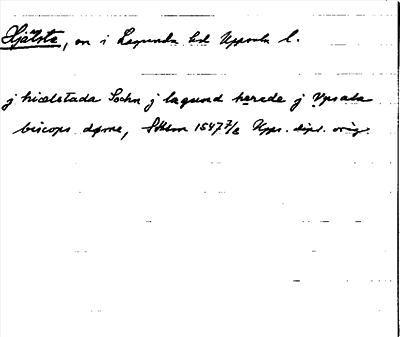 Hjälsta, sn i Lagunda hd Uppsala l.
j hiælstada Sochn j lagund herede j Vpsala
biscops døme, Sthlm 1547 7/2 Upps. dipl. orig.